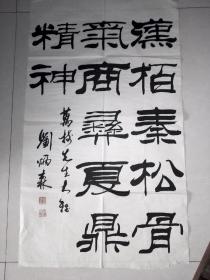 漢柏秦松骨
氣商彝夏鼎
精神
萬楼先生大雅
劉炳森